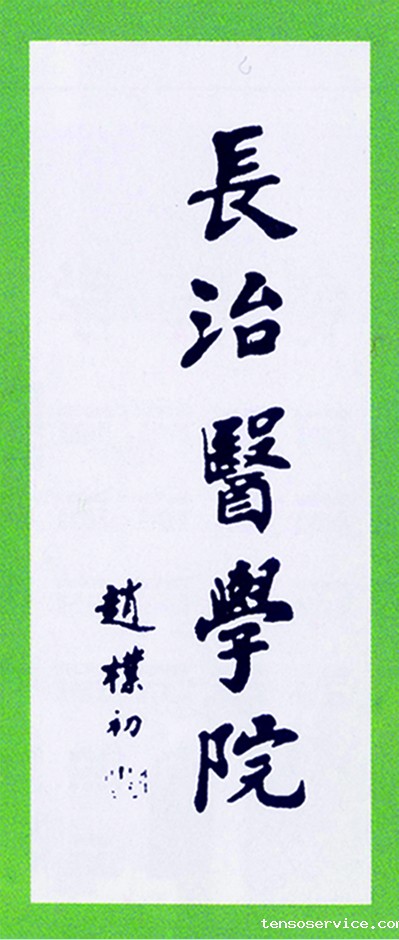 長治醫學院
趙樸初
tensoservice.com